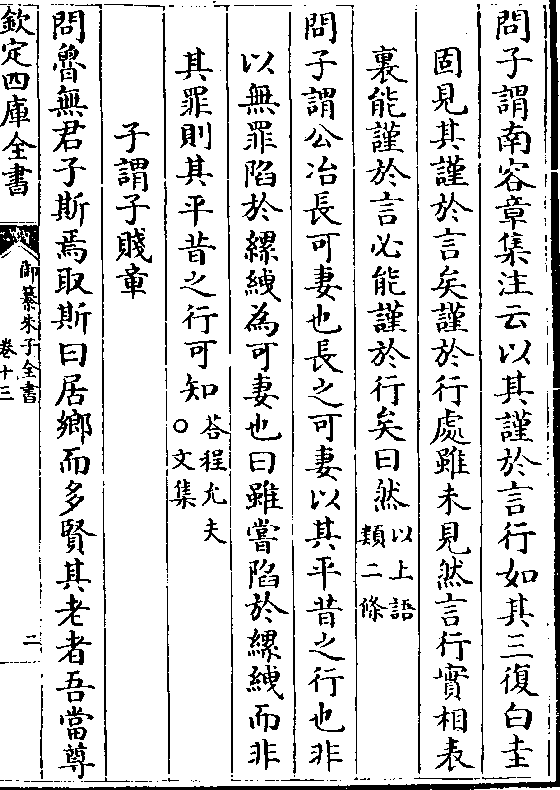 問子謂南容章集注云以其謹於言行如其三復白圭
固見其謹於言矣謹於行處雖未見然言行實相表
裏能謹於言必能謹於行矣曰然以上語類二條
問子謂公冶長可妻也長之可妻以其平昔之行也非
以無罪陷於縲絏為可妻也曰雖嘗陷於縲絏而非
其罪則其平昔之行可知答程允夫○文集
子謂子賤章
問魯無君子斯焉取斯曰居鄉而多賢其老者吾當尊
欽定四庫全書
御纂朱子全書
卷十三
二